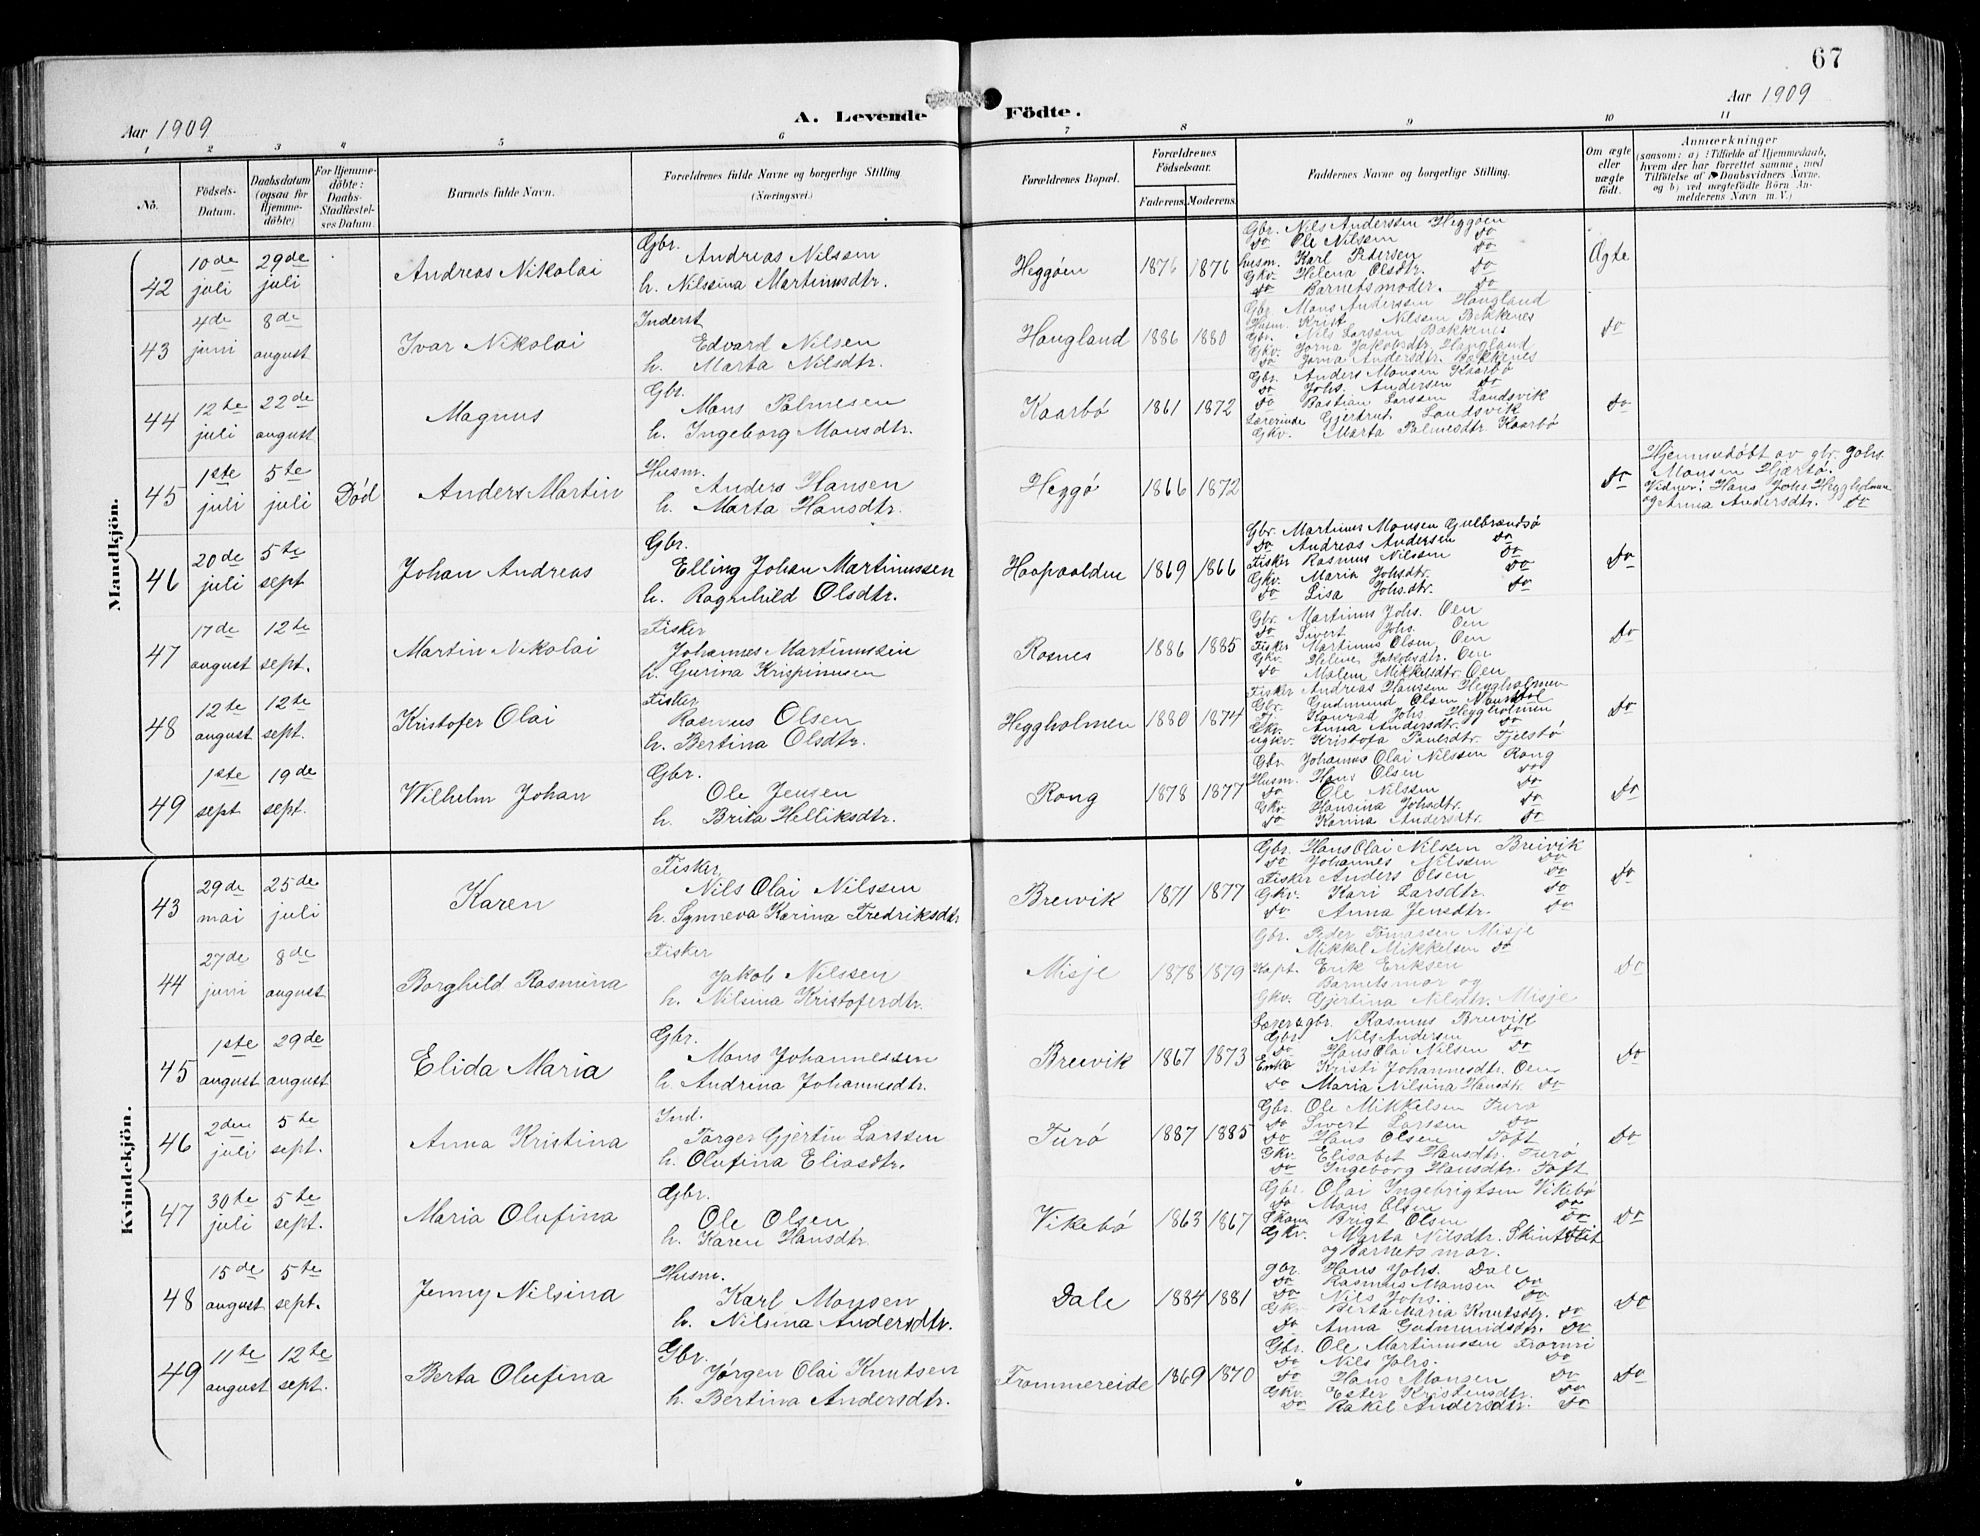 67
Aar 1909
A. Levende Födte.
Aar 1909
1 2 3 4 5 6 7 8 9 10 11
No.
Födsels-Datum.
Daabsdatum (ogsaa for Hjemmedöbte)
For Hjemmedöbte: Daabs-Stadfestelses Datum.
Barnets fulde Navn.
Forældrenes fulde Navne og borgerlige Stilling
(Næringsvei)
Forældrenes Bopæl.
Forældrenes Födselsaar.
Faderens. Moderens.
Faddernes Navne og borgerlige Stilling
Om ægte eller uægte födt.
Anmærkninger
(saasom: a) i Tilfælde af Hjemmedaab, hvem der har forrettet samme, med Tilföielse af Daabsvidners Navne, og b) ved uægtefödte Börn Anmelderens Navn m. V.)
Mandkjön.
42 10de juli 29de juli Andreas Nikolai
Gbr. Andreas Nilssen
h. Nilsina Martinusdtr.
Heggöen 1876 1876
Gbr. Nils Anderssen Heggöen
do Ole Nilsen do
husm. Karl Pedersen do
Gkv. Helena Olsdtr. do
do Barnetsmoder. do
Ægte
43 4de juni 8de august Ivar Nikolai
Inderst Edvard Nilsen
h. Marta Nilsdtr.
Hougland 1886 1880
Gbr. Mons Anderssen Hougland
Husm. Krist Nilssen Bekkenes
Gbr. Nils Larssen Bakkenes
Gkv. Jorna Jakobsdtr. Hougland
do Jorna Andersdtr. Bekkenes
do
44 12te juli 22de august Magnus
Gbr. Mons Palmesen
h. Ingeborg Monsdtr.
Kaarbø 1861 1872
Gbr. Anders Monsen Kaarbø
do Johs. Andersen do
do Bastian Larssen Landsvik
Lærerinde Gjertrut Landsvik
Gkv. Marta Palmesdtr Kaarbø
do
45 1ste juli 5te juli Død Anders Martin
Husm. Anders Hansen
h. Marta Hansdtr.
Heggö 1866 1872
do
Hjemmedöbt av gbr. Johs. Monsen Hjærtø.
Vidner: Hans Johs Heggholmen
og Anna Andersdtr. do
46 20de juli 5te sept Johan Andreas
Gbr. Elling Johan Martinussen
h. Ragnhild Olsdtr.
1869 1866
Gbr. Martinus Monsen Gulbrandsø
do Andreas Andersen do
Fisker Rasmus Nilssen do
Gkv. Maria Johsdtr. do
do Lisa Johsdtr. do
do
47 17de august 12te sept. Martin Nikolai
Fisker Johannes Martinussen
h. Gurina Krispinusen
Rosnes 1886 1885
Gbr. Martinus Johs. Oen
do Sivert Johs. Oen
Fisker Martinus Olsen Oen
Gkv. Helene Jakobsdtr. Oen
do Malene Mikkelsdtr. Oen
do
48 12te august 12te sept. Kristofer Olai
Fisker Rasmus Olsen
h. Bertina Olsdtr.
Heggholmen 1880 1874
Fisker Andreas Hanssen Heggholmen
Gbr. Gudmund Olsen
F. Konrad Johs Heggholmen
Gkv. Anna Andersdtr. do
ugkv. Kristofa Paulsdtr. Fjelsbö
do
49 1ste sept 19de sept. Wilhelm Johan
Gbr. Ole Jensen
h. Brita Helliksdtr.
Rong 1878 1877
Gbr. Johannes Olai Nilssen Rong
Husm. Hans Olsen do
do Ole Nilssen do
Gkv. Hansina Johsdtr. do
do Karina Andersdtr. do
do
Kvindekjön.
43 29de mai 25de juli Karen
Fisker Nils Olai Nilssen
h. Synneva Karina Fredriksdtr
Breivik 1871 1877
Gbr. Hans Olai Nilssen Breivik
do Johannes Nilssen do
Fisker Anders Olsen do
Gkv. Kari Larsdtr. do
do Anna Jensdtr. do
do
44 27de juni 8de august Borghild Rasmina
Fisker Jakob Nilssen
h. Nilsina Kristoferdtr.
Misje 1878 1879
Gbr. Peder Tomassen Misje
Mikkel Mikkelsen do
Kapt. Erik Eriksen
Barnets mor og
Gkv. Gjertina Nilsdtr. Misje
do
45 1ste august 29de august Elida Maria
Gbr. Mons Johannessen
h. Andrina Johannesdtr.
Breivik 1867 1873
Lærer & gbr. Rasmus Breivik
Gbr. Nils Andersen do
do Hans Olai Nilsen do
Enke Kristi Johannesdtr. Oen
do Maria Nilsina Hansdtr do
do
46 2den juli 5te sept. Anna Kristina
Ind. Torger Gjertin Larssen
h. Olufina Eliasdtr.
Turö 1887 1885
Gbr. Ole Mikkelsen Turö
do Sivert Larssen do
do Hans Olsen Toft
Gkv. Elisabet Hansdtr. Turö
do Ingeborg Hansdtr. Toft
do
47 30te juli 5te sept. Maria Olufina
Gbr. Ole Olsen
h. Karen Hansdtr
Vikebø 1863 1867
Gbr. Olai Ingebrigtsen Vikebø
do Mons Olsen do
Brigt Olsen do
Gkv. Marta Nilsdtr.
og Barnets mor.
do
48 15de august 5te sept. Jenny Nilsina
Husm. Karl Monsen
h. Nilsina Andersdtr.
Dale 1884 1881
gbr. Hans Johs. Dale
do Rasmus Monsen do
do Nils Johs. do
Gkv Berta Maria Knutsdtr. do
do Anna Gudmundsdtr. do
do
49 11te august 12te sept. Berta Olufina
Gbr. Jørgen Olai Knutsen
h. Bertina Andersdtr.
Trommereide 1869 1870
Gbr. Ole Martinussen
do Nils Johs. do
do Hans Monsen do
Gkv. Ester Kristensdtr. do
do Rakel Andersdtr. do
do